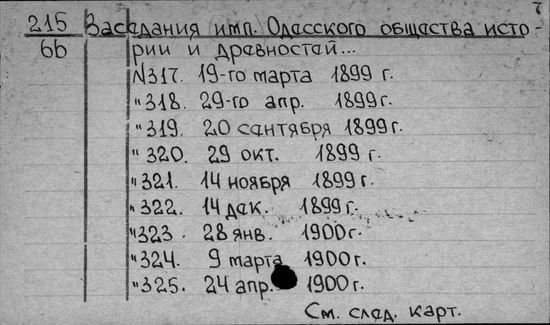 7
215 Заседания имп. Одесского общества исто-
бб рии и древностей...
N317. 19-го марта 1899 г.
"318. 29-го апр. 1899г.
"319. 20 сентября 1899г.
"320. 29 окт. 1899г.
"321. 14 ноября 1899г.
"322. 14 дек. 1899г.
"323. 28 янв. 1900г.
"324. 9 марта 1900г.
"325. 24 апр. 1900г.
См. след. карт.